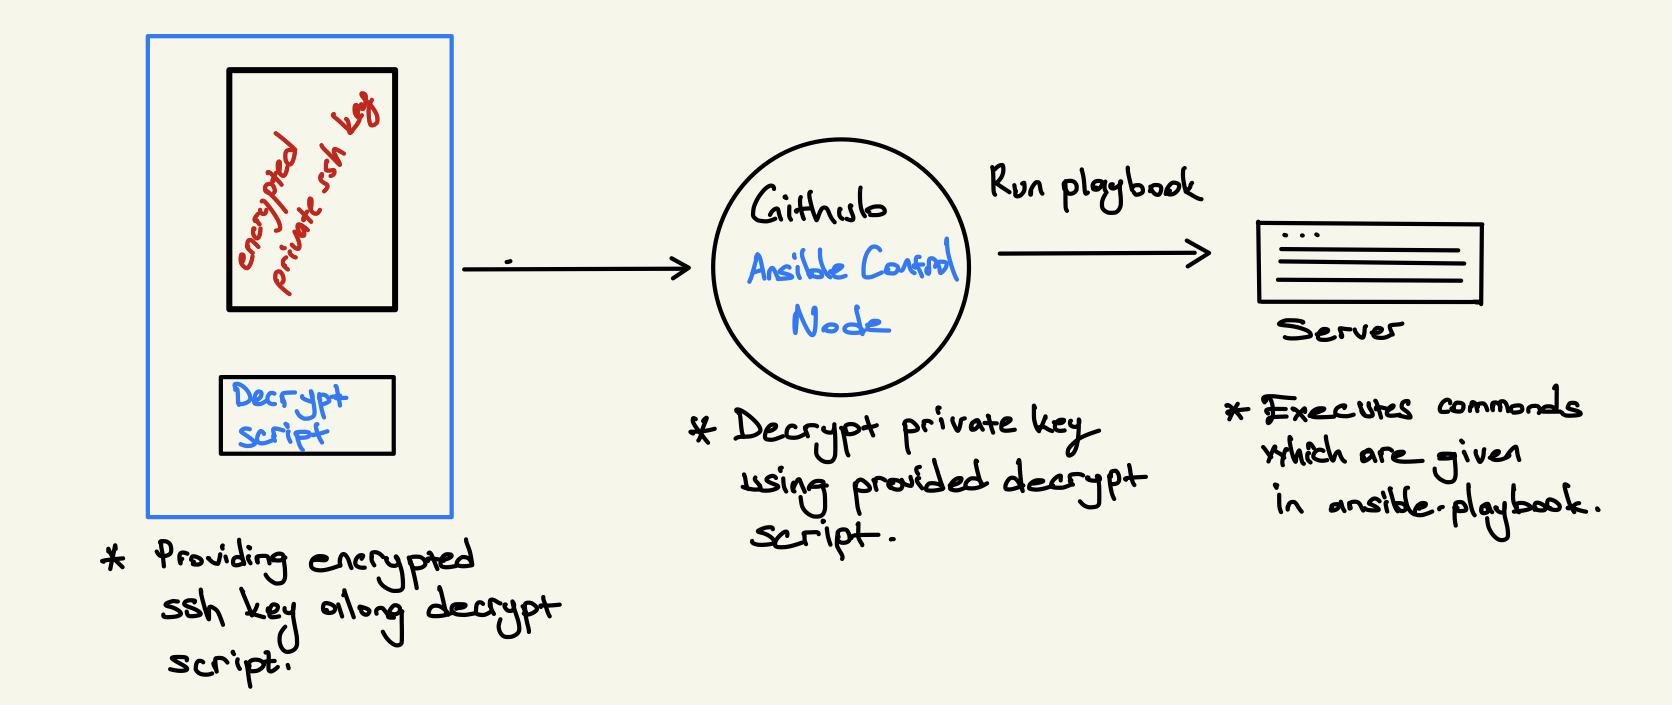 encrypted
private ssh key
Decrypt
script
* Providing encrypted
ssh key along decrypt
script.
Github
Ansible Control
Node
* Decrypt private key
using provided decrypt
script.
Run playbook
Server
* Executes commands
which are given
in ansible-playbook.